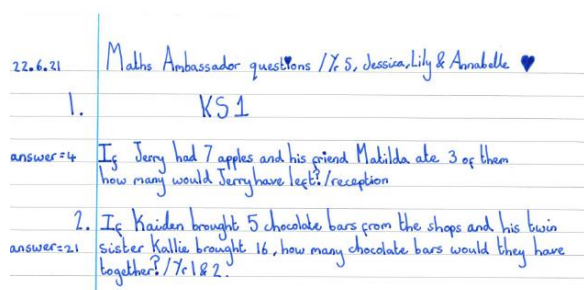 22.6.21 Maths Ambassador questions / Yr 5, Jessica, Lily & Annabelle ♥
1. KS1
answer=4 If Jerry had 7 apples and his friend Matilda ate 3 of them
how many would Jerry have left? / reception
2. If Kaiden brought 5 chocolate bars from the shops and his twin
answer=21 sister Kallie brought 16, how many chocolate bars would they have
together? / Yr 1 & 2.